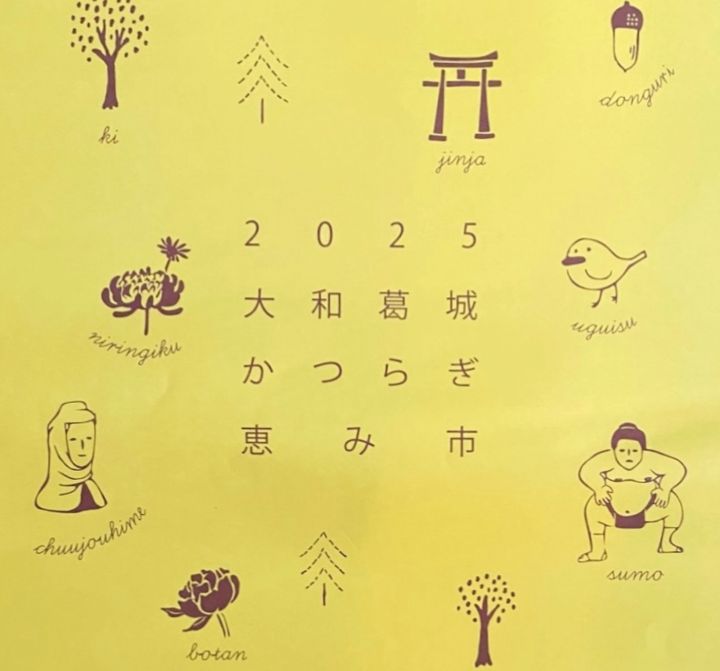 ki
jinja
donguri
2025
大和葛城
かつらぎ
恵み市
niringiku
uguisu
chuujouhime
sumo
botan